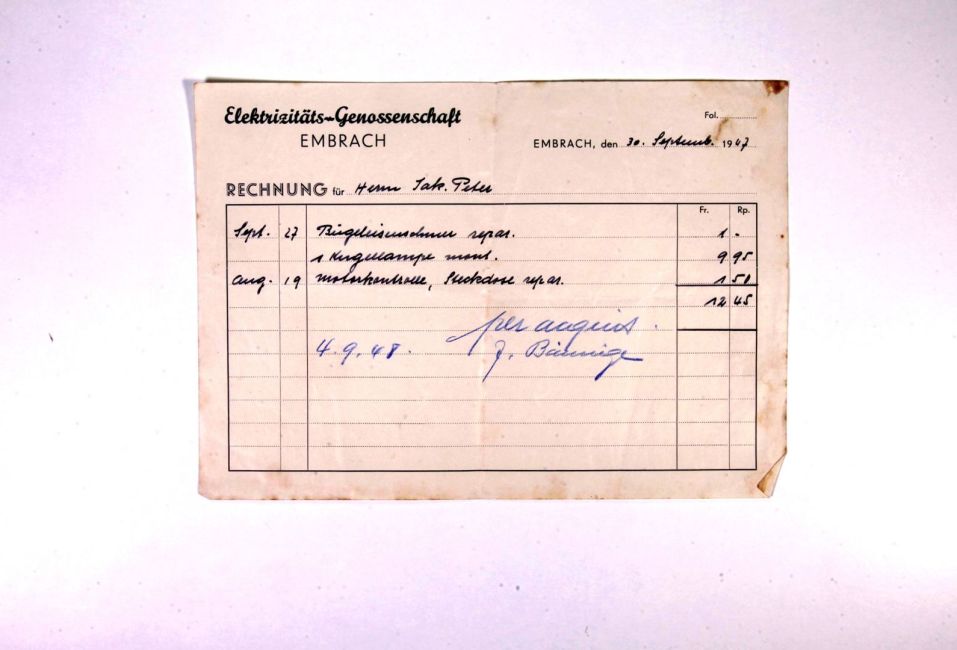 Elektrizitäts-Genossenschaft
EMBRACH
Fol.
EMBRACH, den 30. Septemb. 1947
RECHNUNG für Herrn Jak. Peter
Fr. Rp.
Sept. 27 Bügeleisenschnur repar. 1 -
1 Kugellampe mont. 9 95
Aug. 19 Motorkontrolle, Steckdose repar. 1 50
12 45
per
4. 9. 48. J.